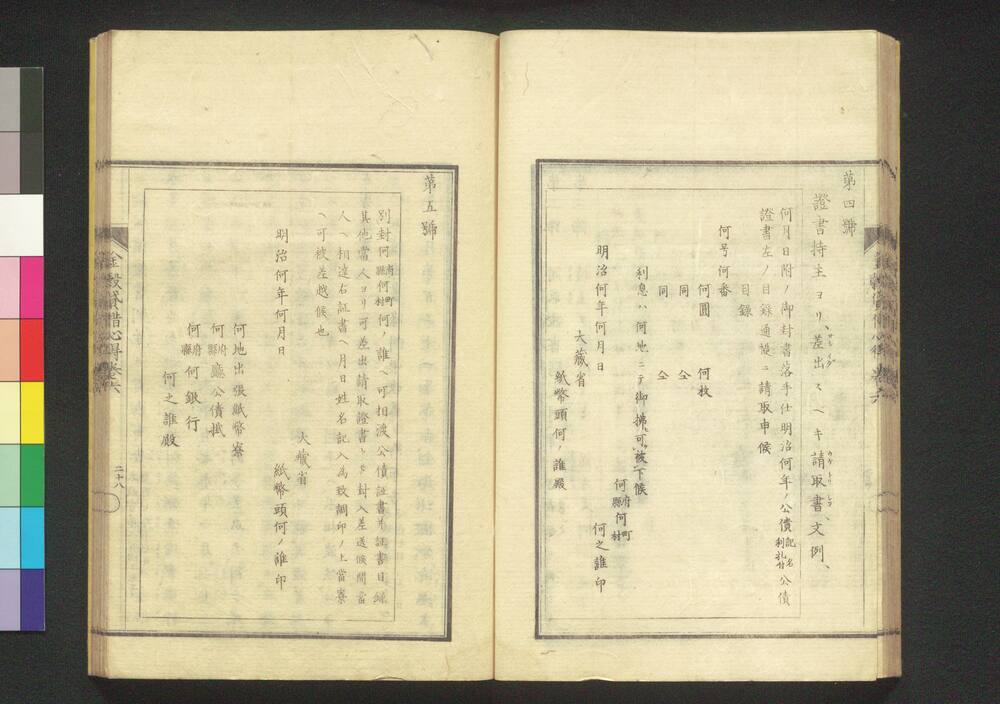 第四號
證書持主ヨリ差出スヘキ請取書文例
何月日附ノ御封書落手仕明治何年ノ公債記名利札付公債
證書左ノ目録通慥ニ請取申候
目録
何号何番
何圓 何枚
同 仝
同 仝
利息ハ何地ニテ御拂可被下候
何府縣何町村
何之誰印
明治何年何月日
大藏省
紙幣頭何ノ誰殿
第五號
別封何府縣何町村何ノ誰ヘ可相渡公債証書并証書目録
其他當人ヨリ可差出請取證書トモ封入差送候間當
人ヘ相達右証書ヘ月日姓名記入為致調印ノ上當寮
ヘ可被差越候也
明治何年何月日
大藏省
紙幣頭何ノ誰印
何地出張紙幣寮
何府縣廳公債掛
何府縣何銀行
何之誰殿
金穀貸借心得巻六
二十八